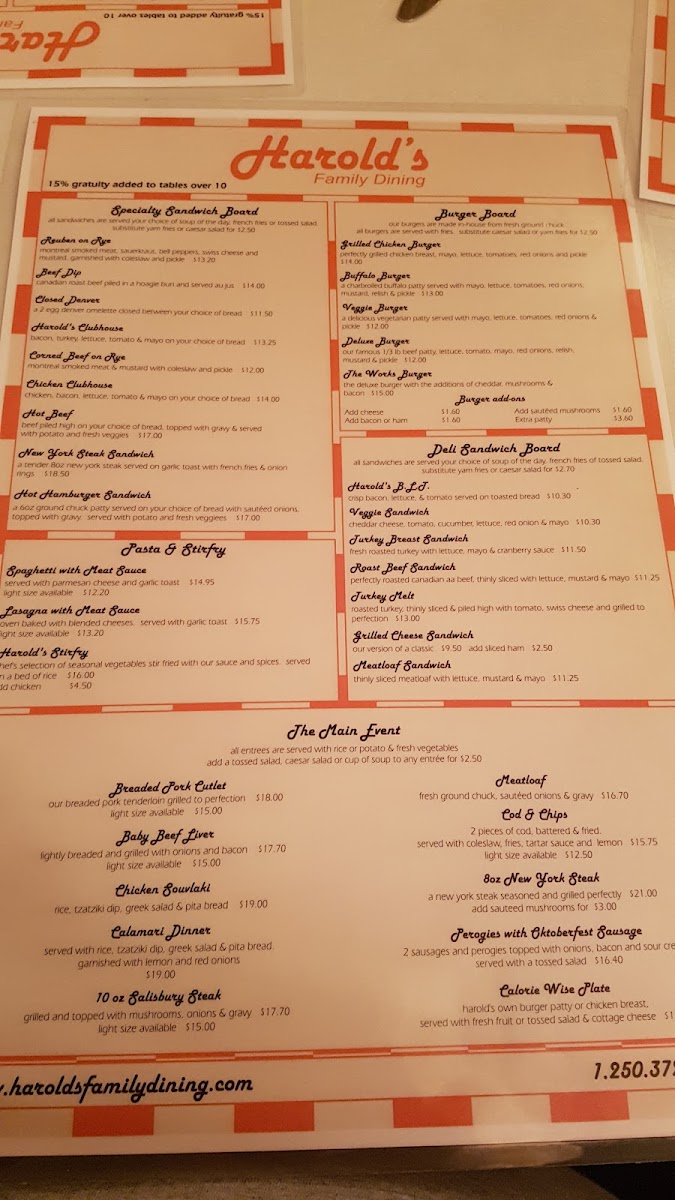 15% gratuity added to tables over 10
Harold's
Family Dining
15% gratuity added to tables over 10
Specialty Sandwich Board
all sandwiches are served your choice of soup of the day, french fries or tossed salad
substitute yam fries or caesar salad for $2.50
Reuben on Rye
montreal smoked meat, sauerkraut, bell peppers, swiss cheese and
mustard, garnished with coleslaw and pickle $13.20
Beef Dip
canadian roast beef piled in a hoagie bun and served au jus $14.00
Closed Denver
a 2 egg denver omelette closed between your choice of bread $11.50
Harold's Clubhouse
bacon, turkey, lettuce, tomato & mayo on your choice of bread $13.25
Corned Beef on Rye
montreal smoked meat & mustard with coleslaw and pickle $12.00
Chicken Clubhouse
chicken, bacon, lettuce, tomato & mayo on your choice of bread $14.00
Hot Beef
beef piled high on your choice of bread, topped with gravy & served
with potato and fresh veggies $17.00
New York Steak Sandwich
a tender 8oz new york steak served on garlic toast with french fries & onion
rings $18.50
Hot Hamburger Sandwich
a 6oz ground chuck patty served on your choice of bread with sautéed onions,
topped with gravy. served with potato and fresh veggiees $17.00
Pasta & Stirfry
Spaghetti with Meat Sauce
served with parmesan cheese and garlic toast $14.95
light size available $12.20
Lasagna with Meat Sauce
oven baked with blended cheeses. served with garlic toast $15.75
light size available $13.20
Harold's Stirfry
hef's selection of seasonal vegetables stir fried with our sauce and spices. served
n a bed of rice $16.00
dd chicken $4.50
Burger Board
our burgers are made in-house from fresh ground chuck
all burgers are served with fries. substitute caesar salad or yam fries for $2.50
Grilled Chicken Burger
perfectly grilled chicken breast, mayo, lettuce, tomatoes, red onions and pickle
$14.00
Buffalo Burger
a charbroiled buffalo patty served with mayo, lettuce, tomatoes, red onions,
mustard, relish & pickle $13.00
Veggie Burger
a delicious vegetarian patty served with mayo, lettuce, tomatoes, red onions &
pickle $12.00
Deluxe Burger
our famous 1/3 lb beef patty, lettuce, tomato, mayo, red onions, relish,
mustard & pickle $12.00
The Works Burger
the deluxe burger with the additions of cheddar, mushrooms &
bacon $15.00
Burger add-ons
Add cheese $1.60 Add sautéed mushrooms $1.60
Add bacon or ham $1.60 Extra patty $3.60
Deli Sandwich Board
all sandwiches are served your choice of soup of the day, french fries of tossed salad.
substitute yam fries or caesar salad for $2.70
Harold's B.L.T.
crisp bacon, lettuce, & tomato served on toasted bread $10.30
Veggie Sandwich
cheddar cheese, tomato, cucumber, lettuce, red onion & mayo $10.30
Turkey Breast Sandwich
fresh roasted turkey with lettuce, mayo & cranberry sauce $11.50
Roast Beef Sandwich
perfectly roasted canadian aa beef, thinly sliced with lettuce, mustard & mayo $11.25
Turkey Melt
roasted turkey, thinly sliced & piled high with tomato, swiss cheese and grilled to
perfection $13.00
Grilled Cheese Sandwich
our version of a classic $9.50 add sliced ham $2.50
Meatloaf Sandwich
thinly sliced meatloaf with lettuce, mustard & mayo $11.25
The Main Event
all entrees are served with rice or potato & fresh vegetables
add a tossed salad, caesar salad or cup of soup to any entrée for $2.50
Breaded Pork Cutlet
our breaded pork tenderloin grilled to perfection $18.00
light size available $15.00
Baby Beef Liver
lightly breaded and grilled with onions and bacon $17.70
light size available $15.00
Chicken Souvlaki
rice, tzatziki dip, greek salad & pita bread $19.00
Calamari Dinner
served with rice, tzatziki dip, greek salad & pita bread.
garnished with lemon and red onions
$19.00
10 oz Salisbury Steak
grilled and topped with mushrooms, onions & gravy $17.70
light size available $15.00
Meatloaf
fresh ground chuck, sautéed onions & gravy $16.70
Cod & Chips
2 pieces of cod, battered & fried.
served with coleslaw, fries, tartar sauce and lemon $15.75
light size available $12.50
8oz New York Steak
a new york steak seasoned and grilled perfectly $21.00
add sauteed mushrooms for $3.00
Perogies with Oktoberfest Sausage
2 sausages and perogies topped with onions, bacon and sour cre
served with a tossed salad $16.40
Calorie Wise Plate
harold's own burger patty or chicken breast,
served with fresh fruit or tossed salad & cottage cheese $1
.haroldsfamilydining.com
1.250.372